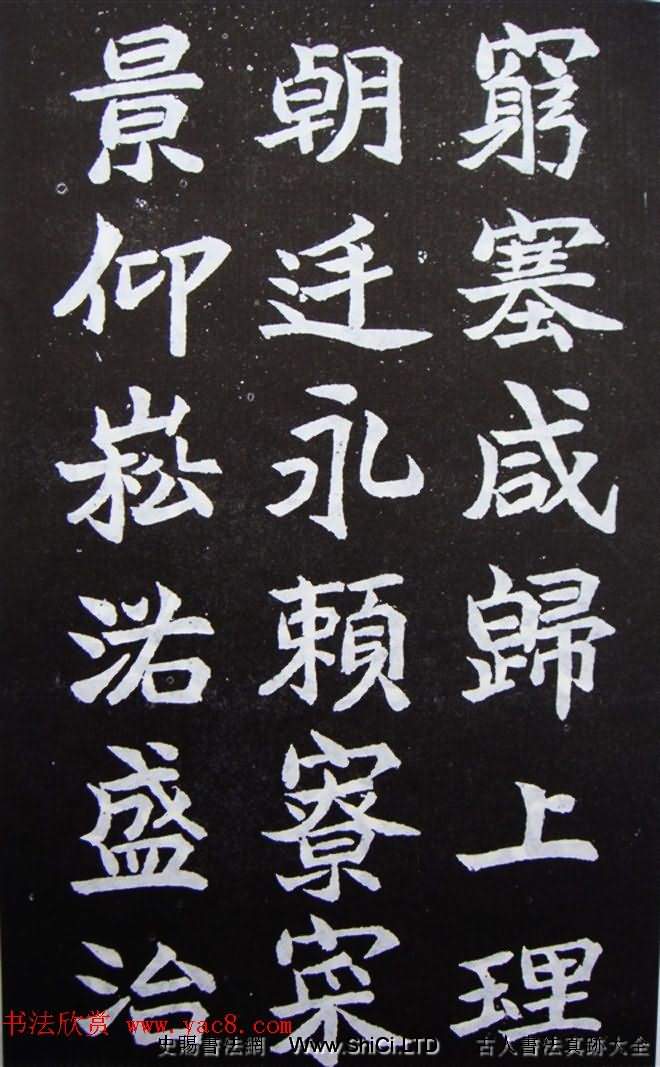 窮塞咸歸上理
朝廷永頼寮寀
景仰崧盛治
书法欣赏 www.yac8.com
史賜書法網 Www.ShiCi.LTD 古人書法真跡大全